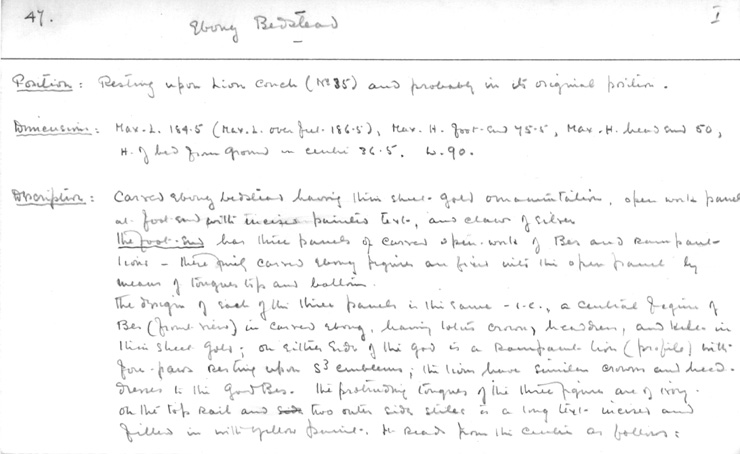 47.
Ebony Bedstead
I
Position: Resting upon Lion Couch (No 35) and probably in its original position.
Dimensions: Max. L. 184.5 (Max. L. over feet 186.5), Max. H. foot-end 75.5, Max. H. head end 50,
H. of bed from ground in centre 36.5. W. 90.
Description: Carved ebony bedstead having thin sheet-gold ornamentation, open work panel
at foot-end with incised painted text, and claws of silver
The foot-end has three panels of carved open-work of Bes and rampant
lions - these carved ebony figures are fixed into the open panel by
means of tongues top and bottom.
The design of each of the three panels is the same - i.e., a central figure of
Bes (front view) in carved ebony, having lotus crown, headdress, and kilt in
thin sheet gold; on either side of the god is a rampant lion (profile) with
fore-paws resting upon S3 emblems; the lions have similar crowns and head-
dresses to the God Bes. The protruding tongues of the three figures are of ivory.
On the top rail and two outer side stiles is a long text incised and
filled in with yellow paint. It reads from the centre as follows: